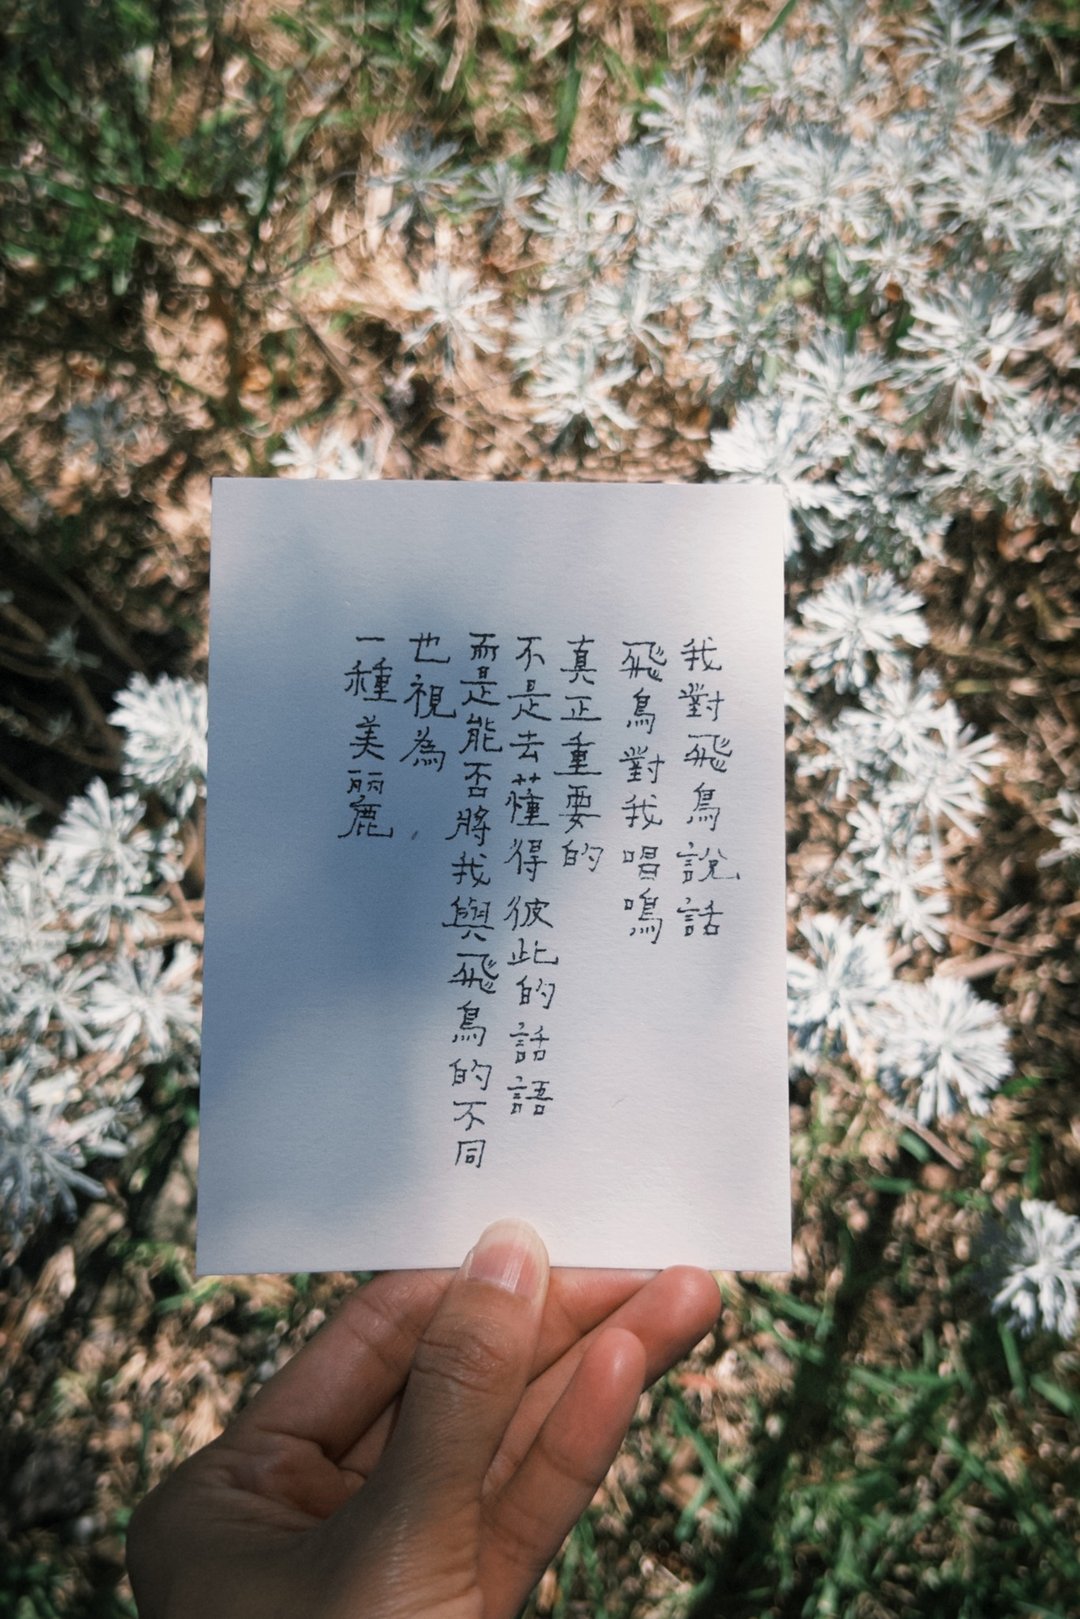 我對飛鳥說話
飛鳥對我唱鳴
真正重要的
不是去懂得彼此的話語
而是能否將我與飛鳥的不同
也視為
一種美麗